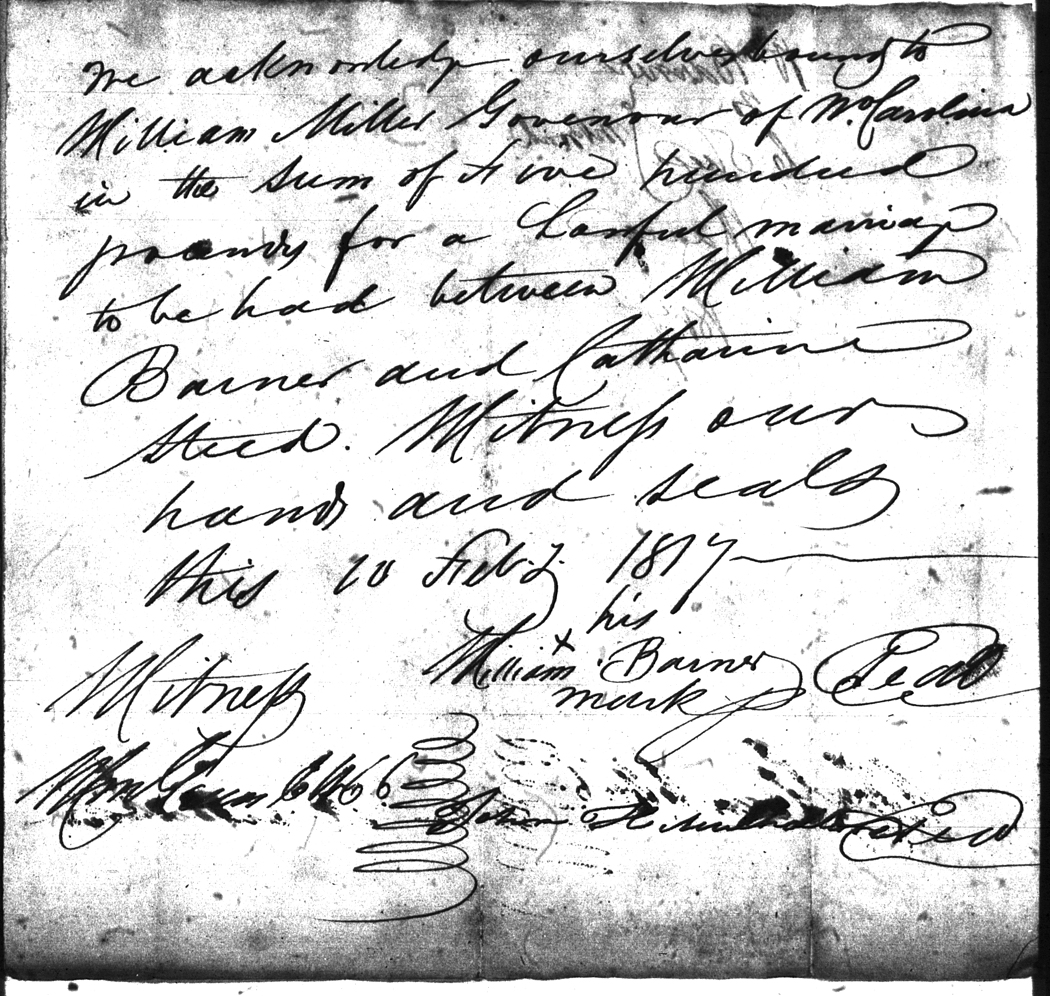 We acknowledge ourselves bound to
William Miller Govenour of No. Carolina
in the sum of Five hundred
pounds for a Lawful marriage
to be had between William
Barner and Catharine
Steed. Witness our
hands and seals
this 10 Feby. 1817
his
William x Barner Seal
mark
Witness
Wm Green CMCC
John Seal